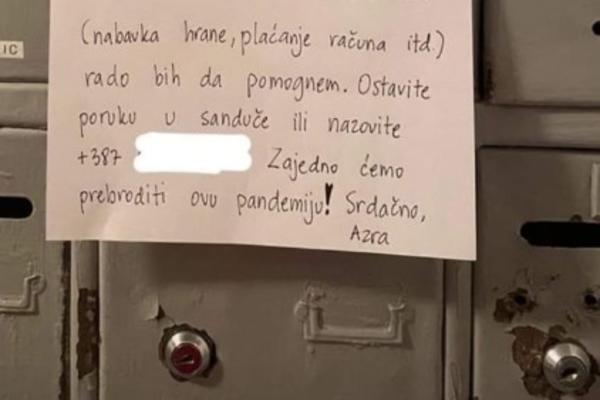 IC
(nabavka hrane, plaćanje računa itd.)
rado bih da pomognem. Ostavite
poruku u sanduče ili nazovite
+387 Zajedno ćemo
prebroditi ovu pandemiju! Srdačno,
Azra